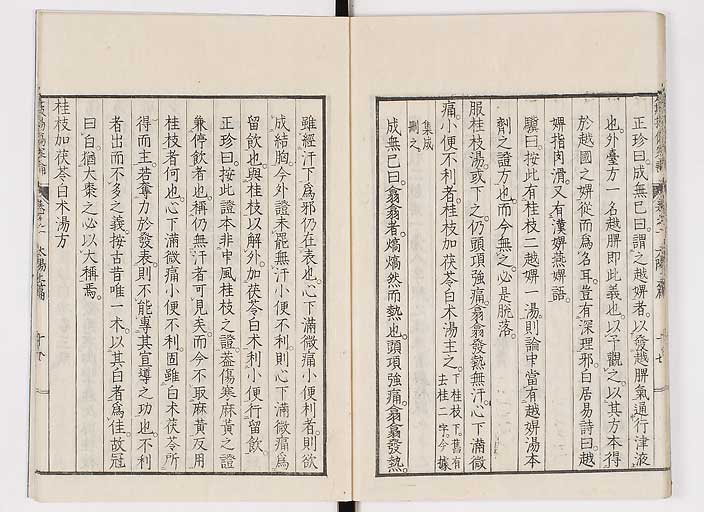 正珍曰。成無己曰。謂之越婢者。以發越脾氣通行津液
也。外臺方一名越脾。即此義也。以予觀之。以其方本得
於越國之婢。從而爲名耳。豈有深理邪。白居易詩曰。越
婢指肉滑。又有漢婢燕婢語。
驥曰。按此有桂枝二越婢一湯。則論中當有越婢湯本
劑之證方也。而今無之。必是脫落。
服桂枝湯。或下之。仍頭項強痛。翕翕發熱無汗。心下滿微
痛。小便不利者。桂枝加茯苓白朮湯主之。下桂枝下。舊有去桂二字。今據
集成刪之。
成無己曰。翕翕者。熇熇然而熱也。頭項強痛。翕翕發熱。
雖經汗下。爲邪仍在表也。心下滿微痛。小便利者。則欲
成結胸。今外證未罷。無汗小便不利。則心下滿微痛。爲
留飲也。與桂枝以解外。加茯苓白朮。利小便行留飲。
正珍曰。按此證本非中風桂枝之證。葢傷寒麻黃之證
兼停飲者也。稱仍無汗者可見矣。而今不取麻黃。反用
桂枝者何也。心下滿微痛小便不利。固雖白朮茯苓所
得而主。若奪力於發表。則不能專其宣導之功也。不利
者出而不多之義。按古昔唯一朮。以其白者爲佳。故冠
曰白。猶大棗之必以大稱焉。
桂枝加茯苓白朮湯方